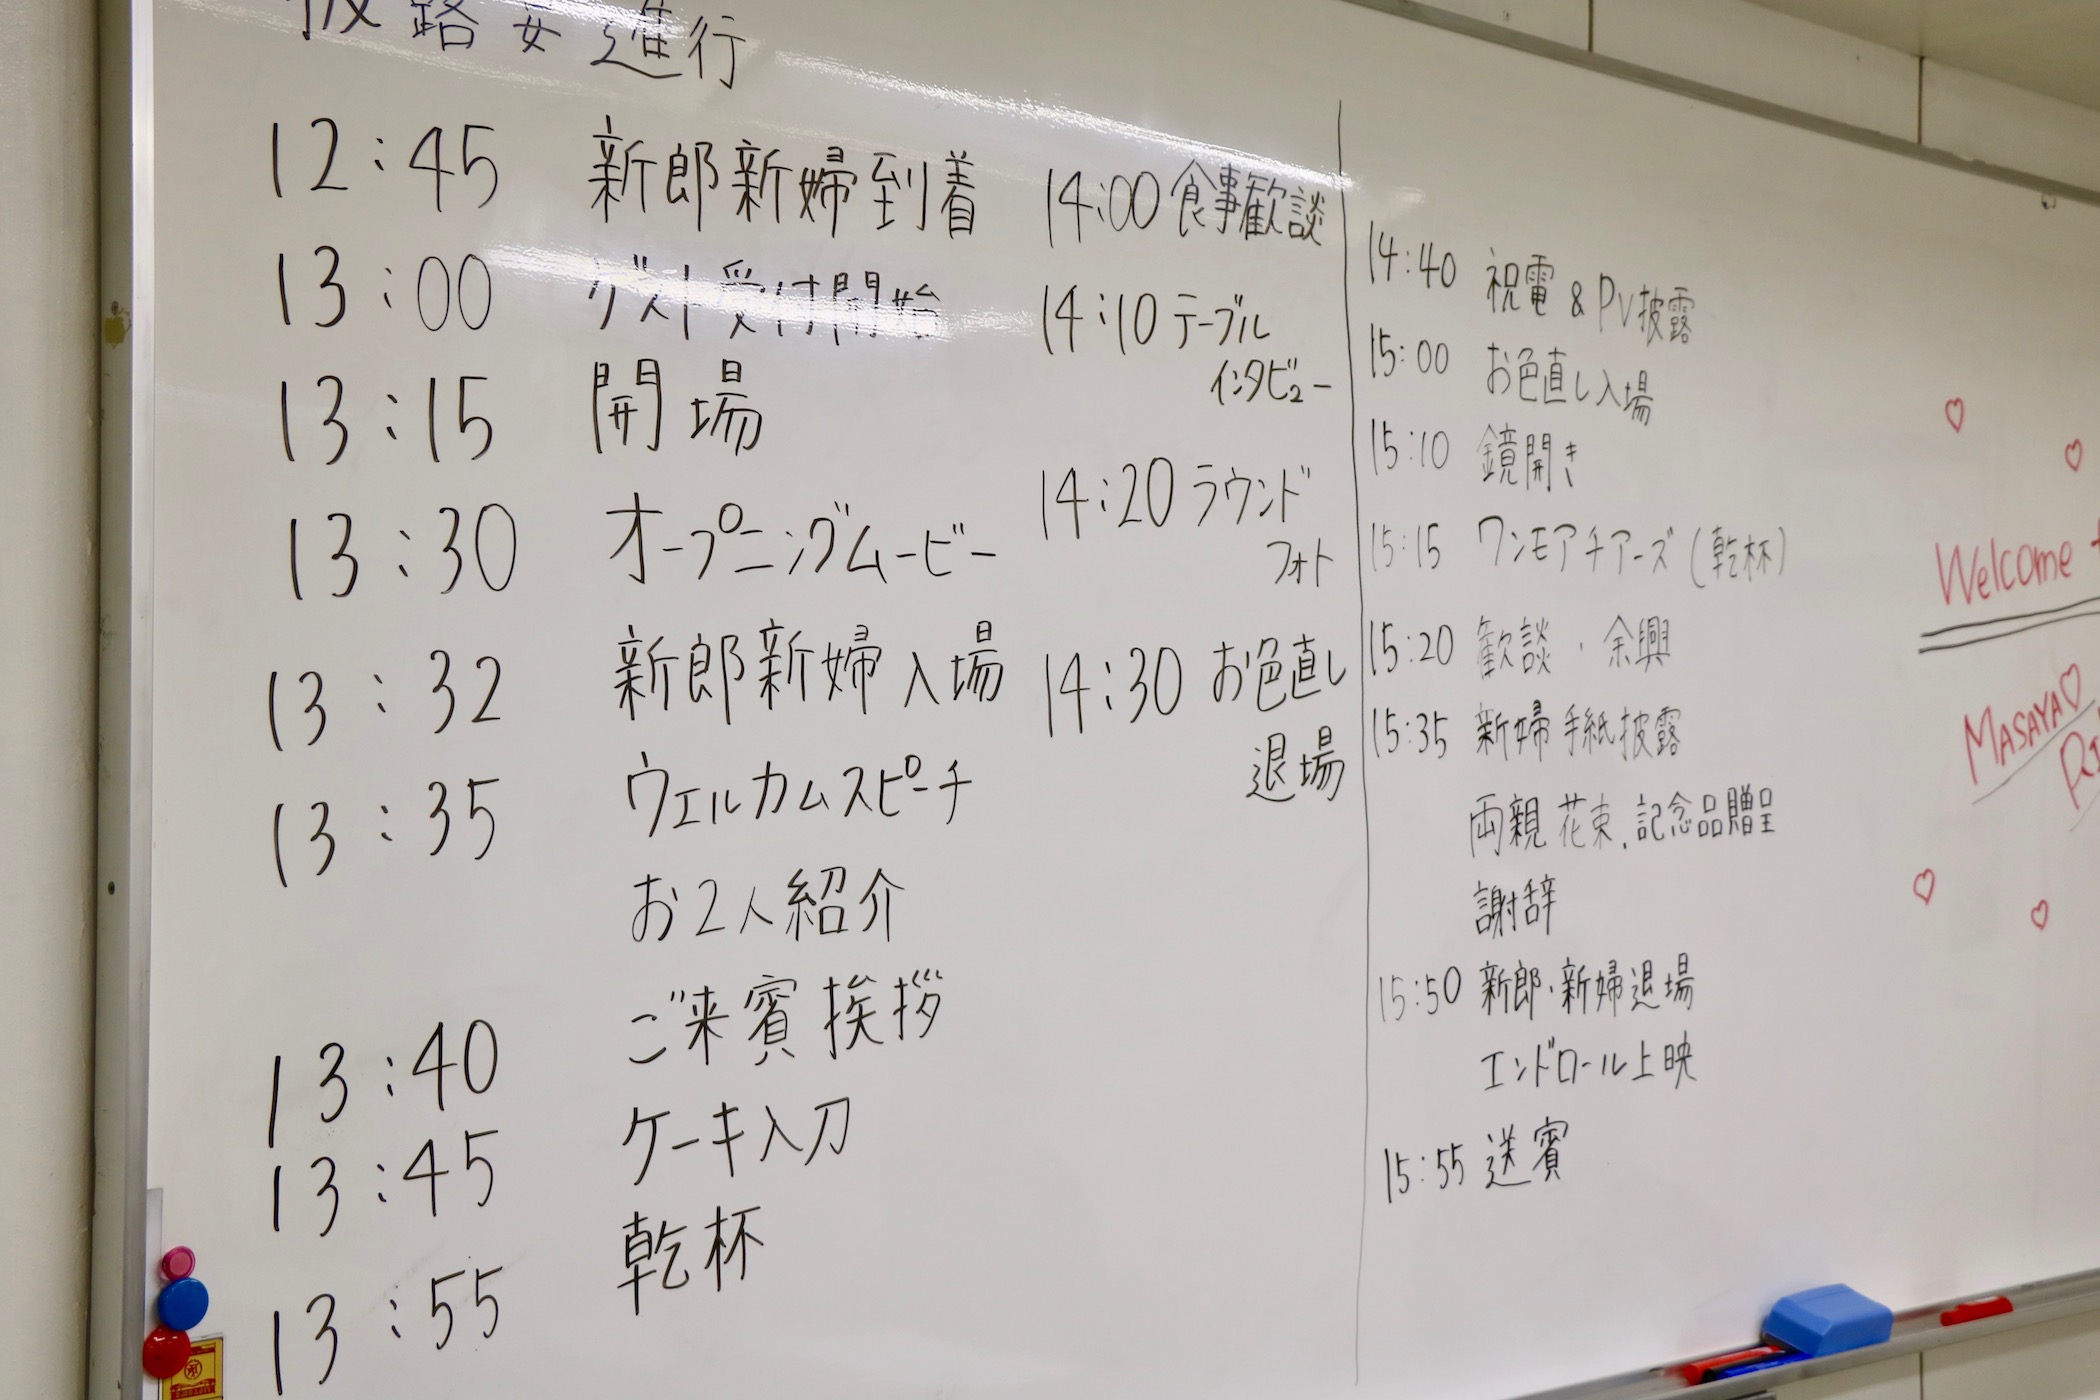 披露宴進行
12:45 新郎新婦到着
13:00 ゲスト受付開始
13:15 開場
13:30 オープニングムービー
13:32 新郎新婦入場
13:35 ウェルカムスピーチ
お2人紹介
13:40 ご来賓挨拶
13:45 ケーキ入刀
13:55 乾杯
14:00 食事歓談
14:10 テーブル
インタビュー
14:20 ラウンド
フォト
14:30 お色直し
退場
14:40 祝電&PV披露
15:00 お色直し入場
15:10 鏡開き
15:15 ワンモアチアーズ(乾杯)
15:20 歓談・余興
15:35 新婦手紙披露
両親花束.記念品贈呈
謝辞
15:50 新郎・新婦退場
エンドロール上映
15:55 送賓
Welcome
MASAYA♡